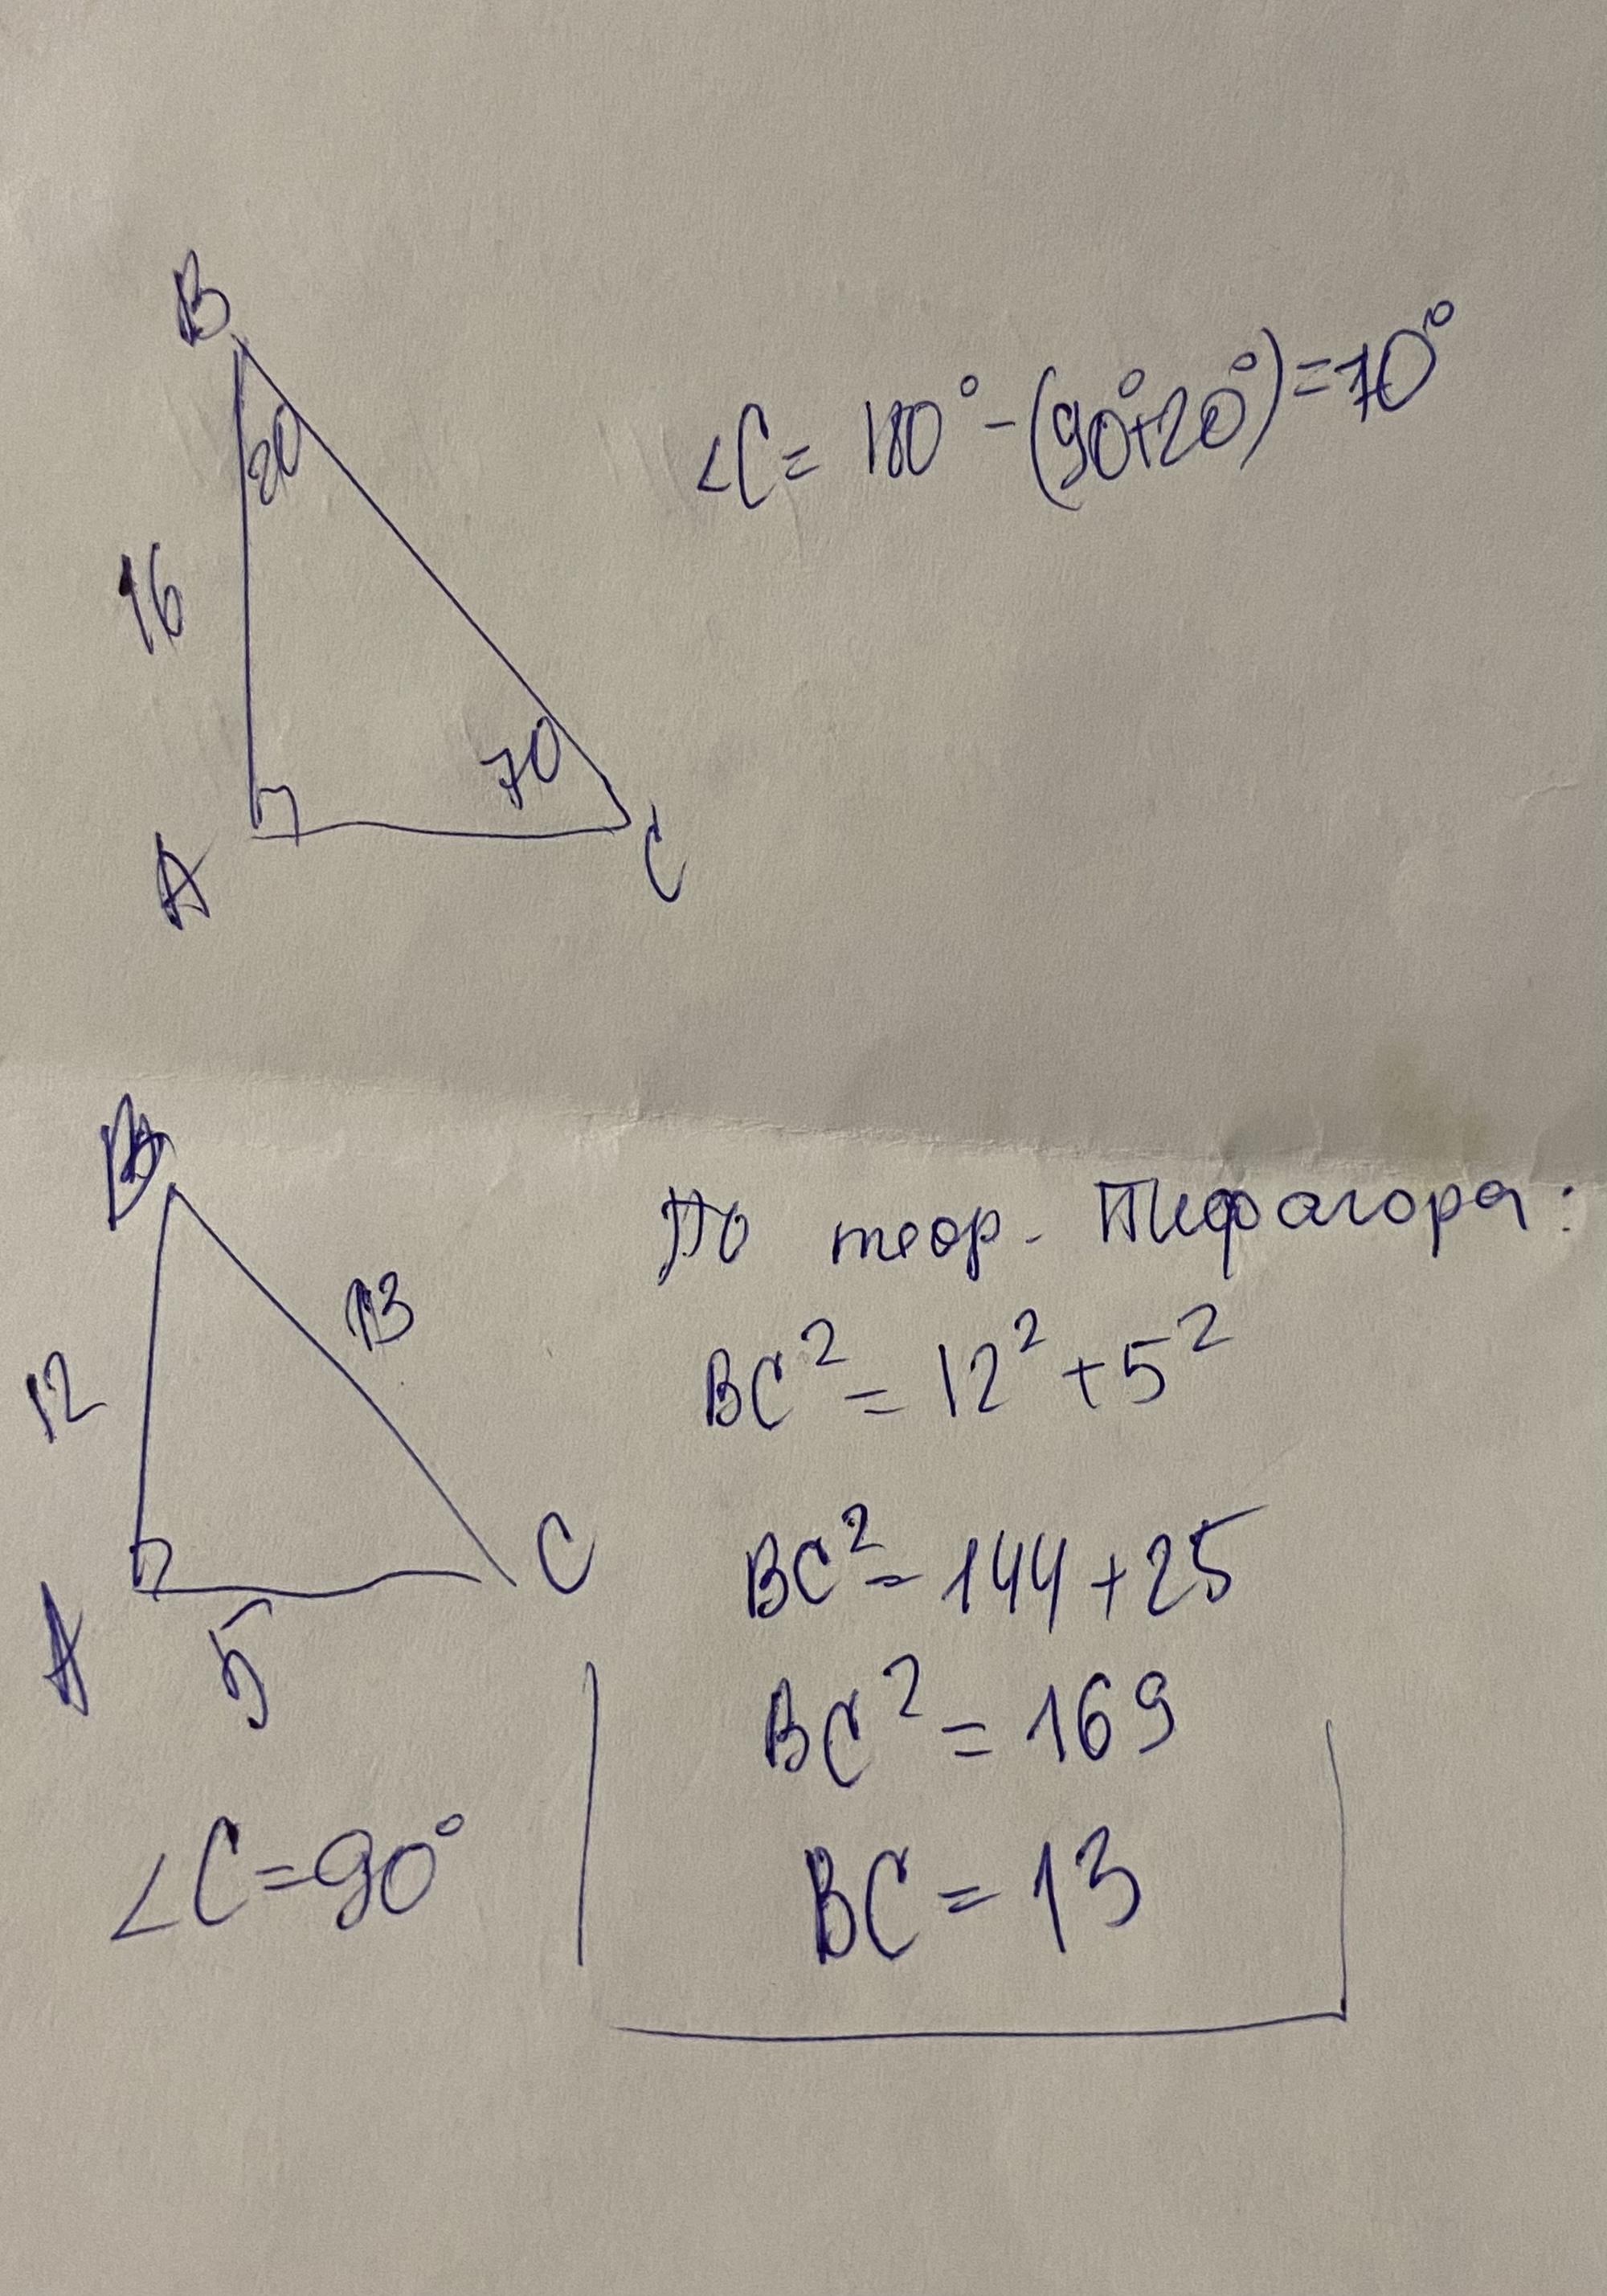 B
20
16
70
A
C
∠C = 180° - (90°+20°) = 70°
B
12
13
A
5
C
∠C = 90°
По теор. Пифагора:
BC² = 12² + 5²
BC² = 144 + 25
BC² = 169
BC = 13